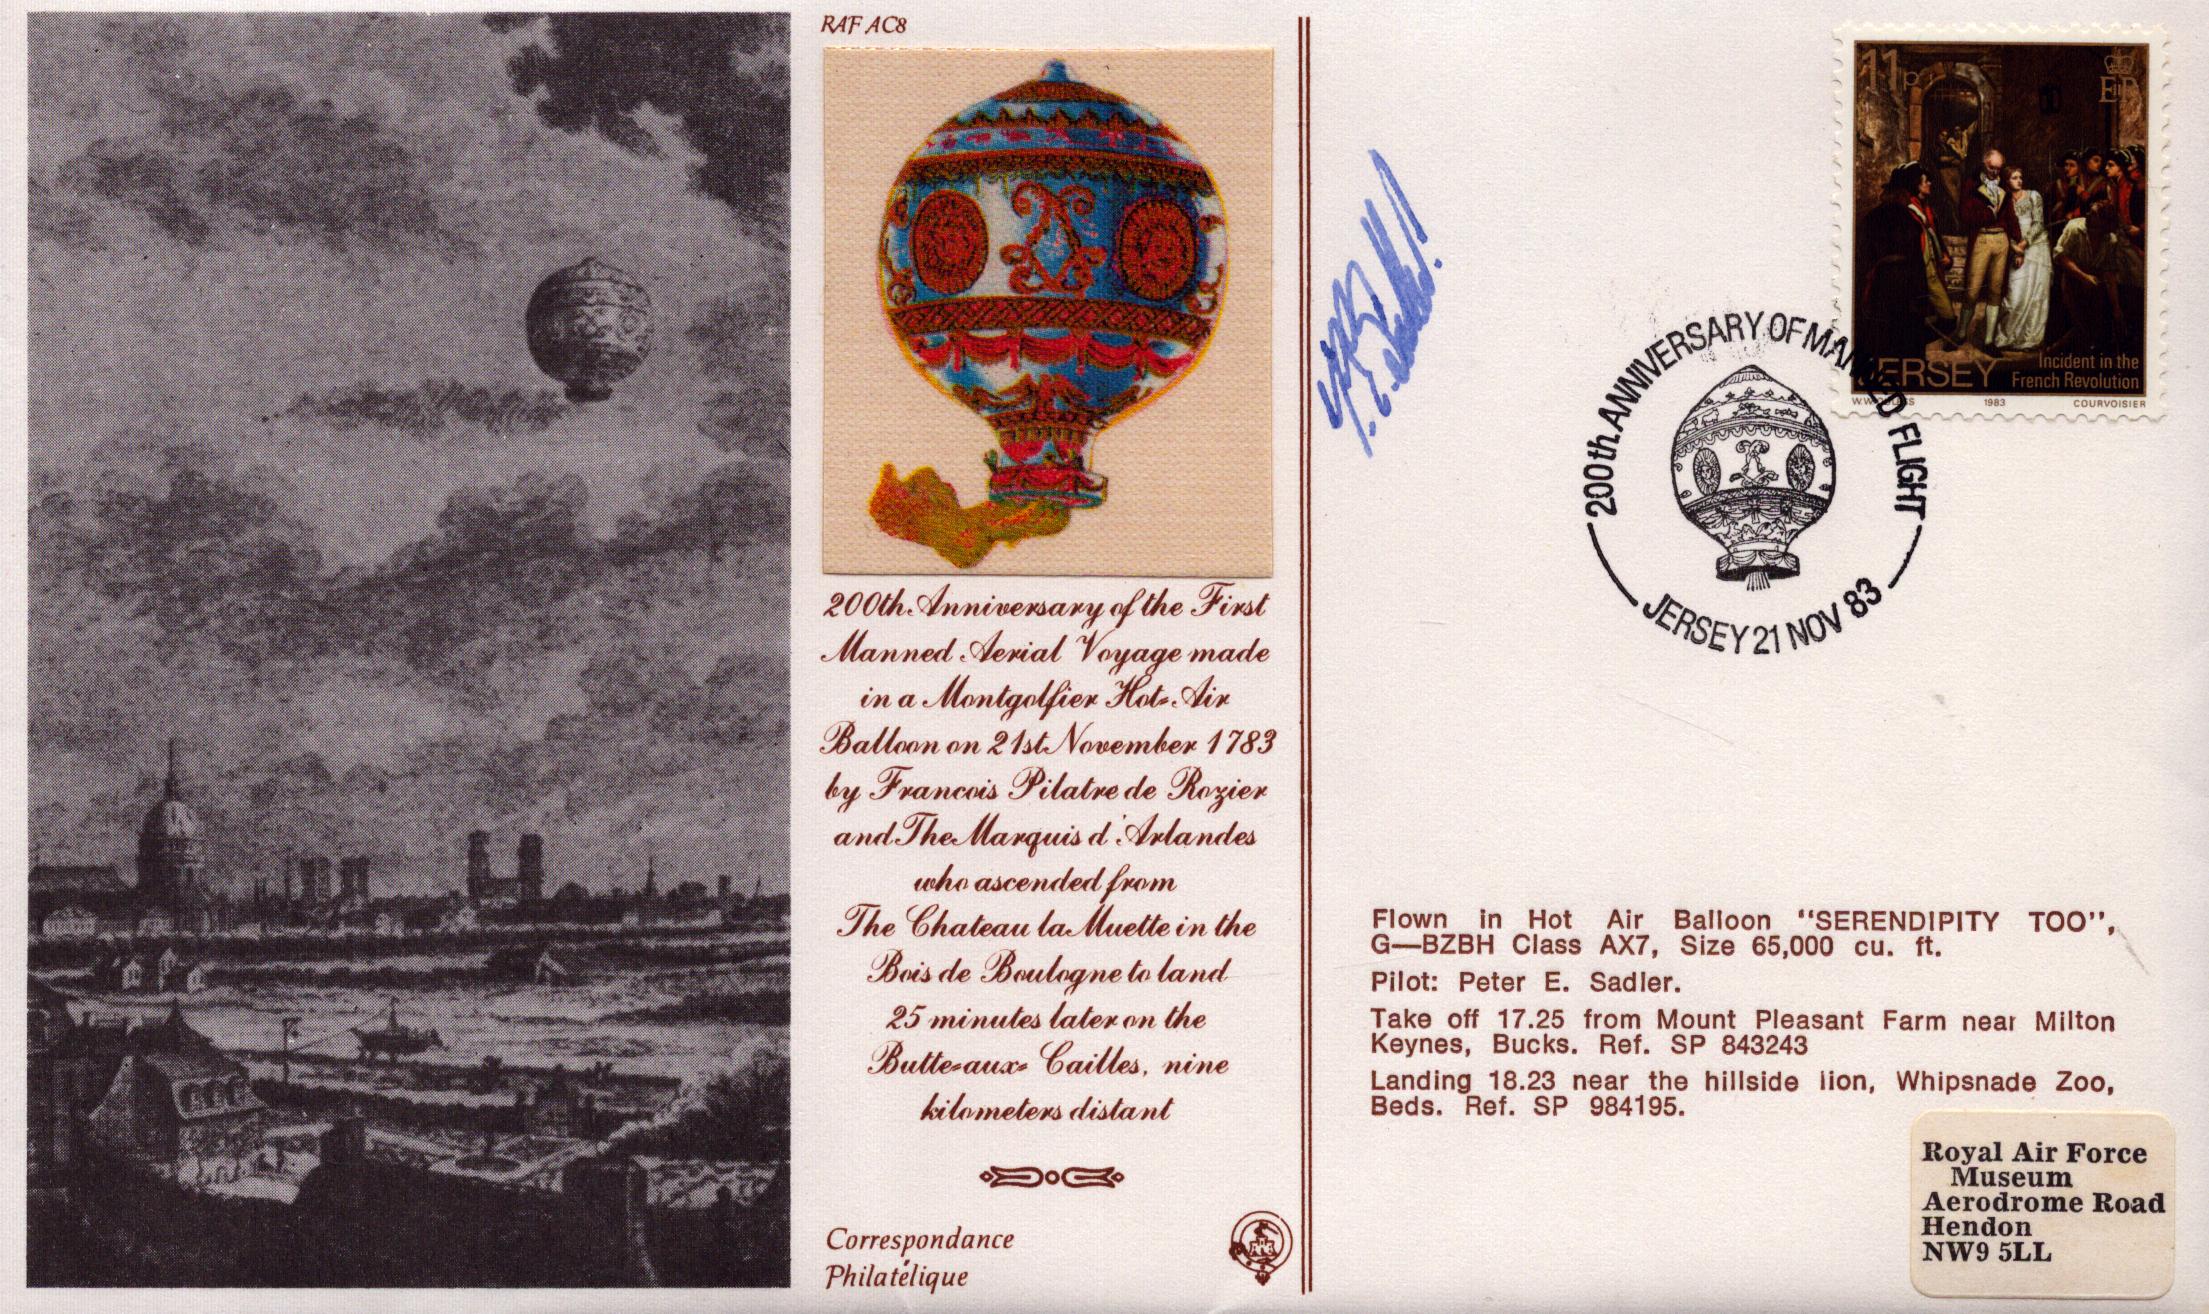 RAF AC8
200th Anniversary of the First
Manned Aerial Voyage made
in a Montgolfier Hot-Air
Balloon on 21st November 1783
by Francois Pilatre de Rozier
and The Marquis d'Arlandes
who ascended from
The Chateau la Muette in the
Bois de Boulogne to land
25 minutes later on the
Butte-aux-Cailles, nine
kilometers distant
Correspondance
Philatélique
11p
EIIR
JERSEY
Incident in the
French Revolution
1983
COURVOISIER
200th ANNIVERSARY OF MANNED FLIGHT
JERSEY 21 NOV 83
Flown in Hot Air Balloon “SERENDIPITY TOO”,
G—BZBH Class AX7, Size 65,000 cu. ft.
Pilot: Peter E. Sadler.
Take off 17.25 from Mount Pleasant Farm near Milton
Keynes, Bucks. Ref. SP 843243
Landing 18.23 near the hillside lion, Whipsnade Zoo,
Beds. Ref. SP 984195.
Royal Air Force
Museum
Aerodrome Road
Hendon
NW9 5LL